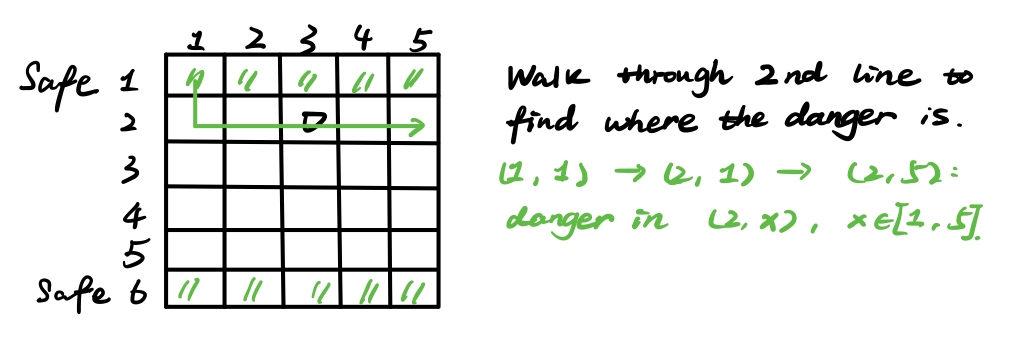 1 2 3 4 5
Safe 1
2
D
3
4
5
Safe 6
Walk through 2nd line to
find where the danger is.
(1, 1) → (2, 1) → (2, 5):
danger in (2, x), x∈[1, 5].